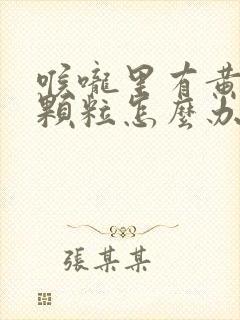 喉嚨里有黃
顆粒怎麼办
張某某